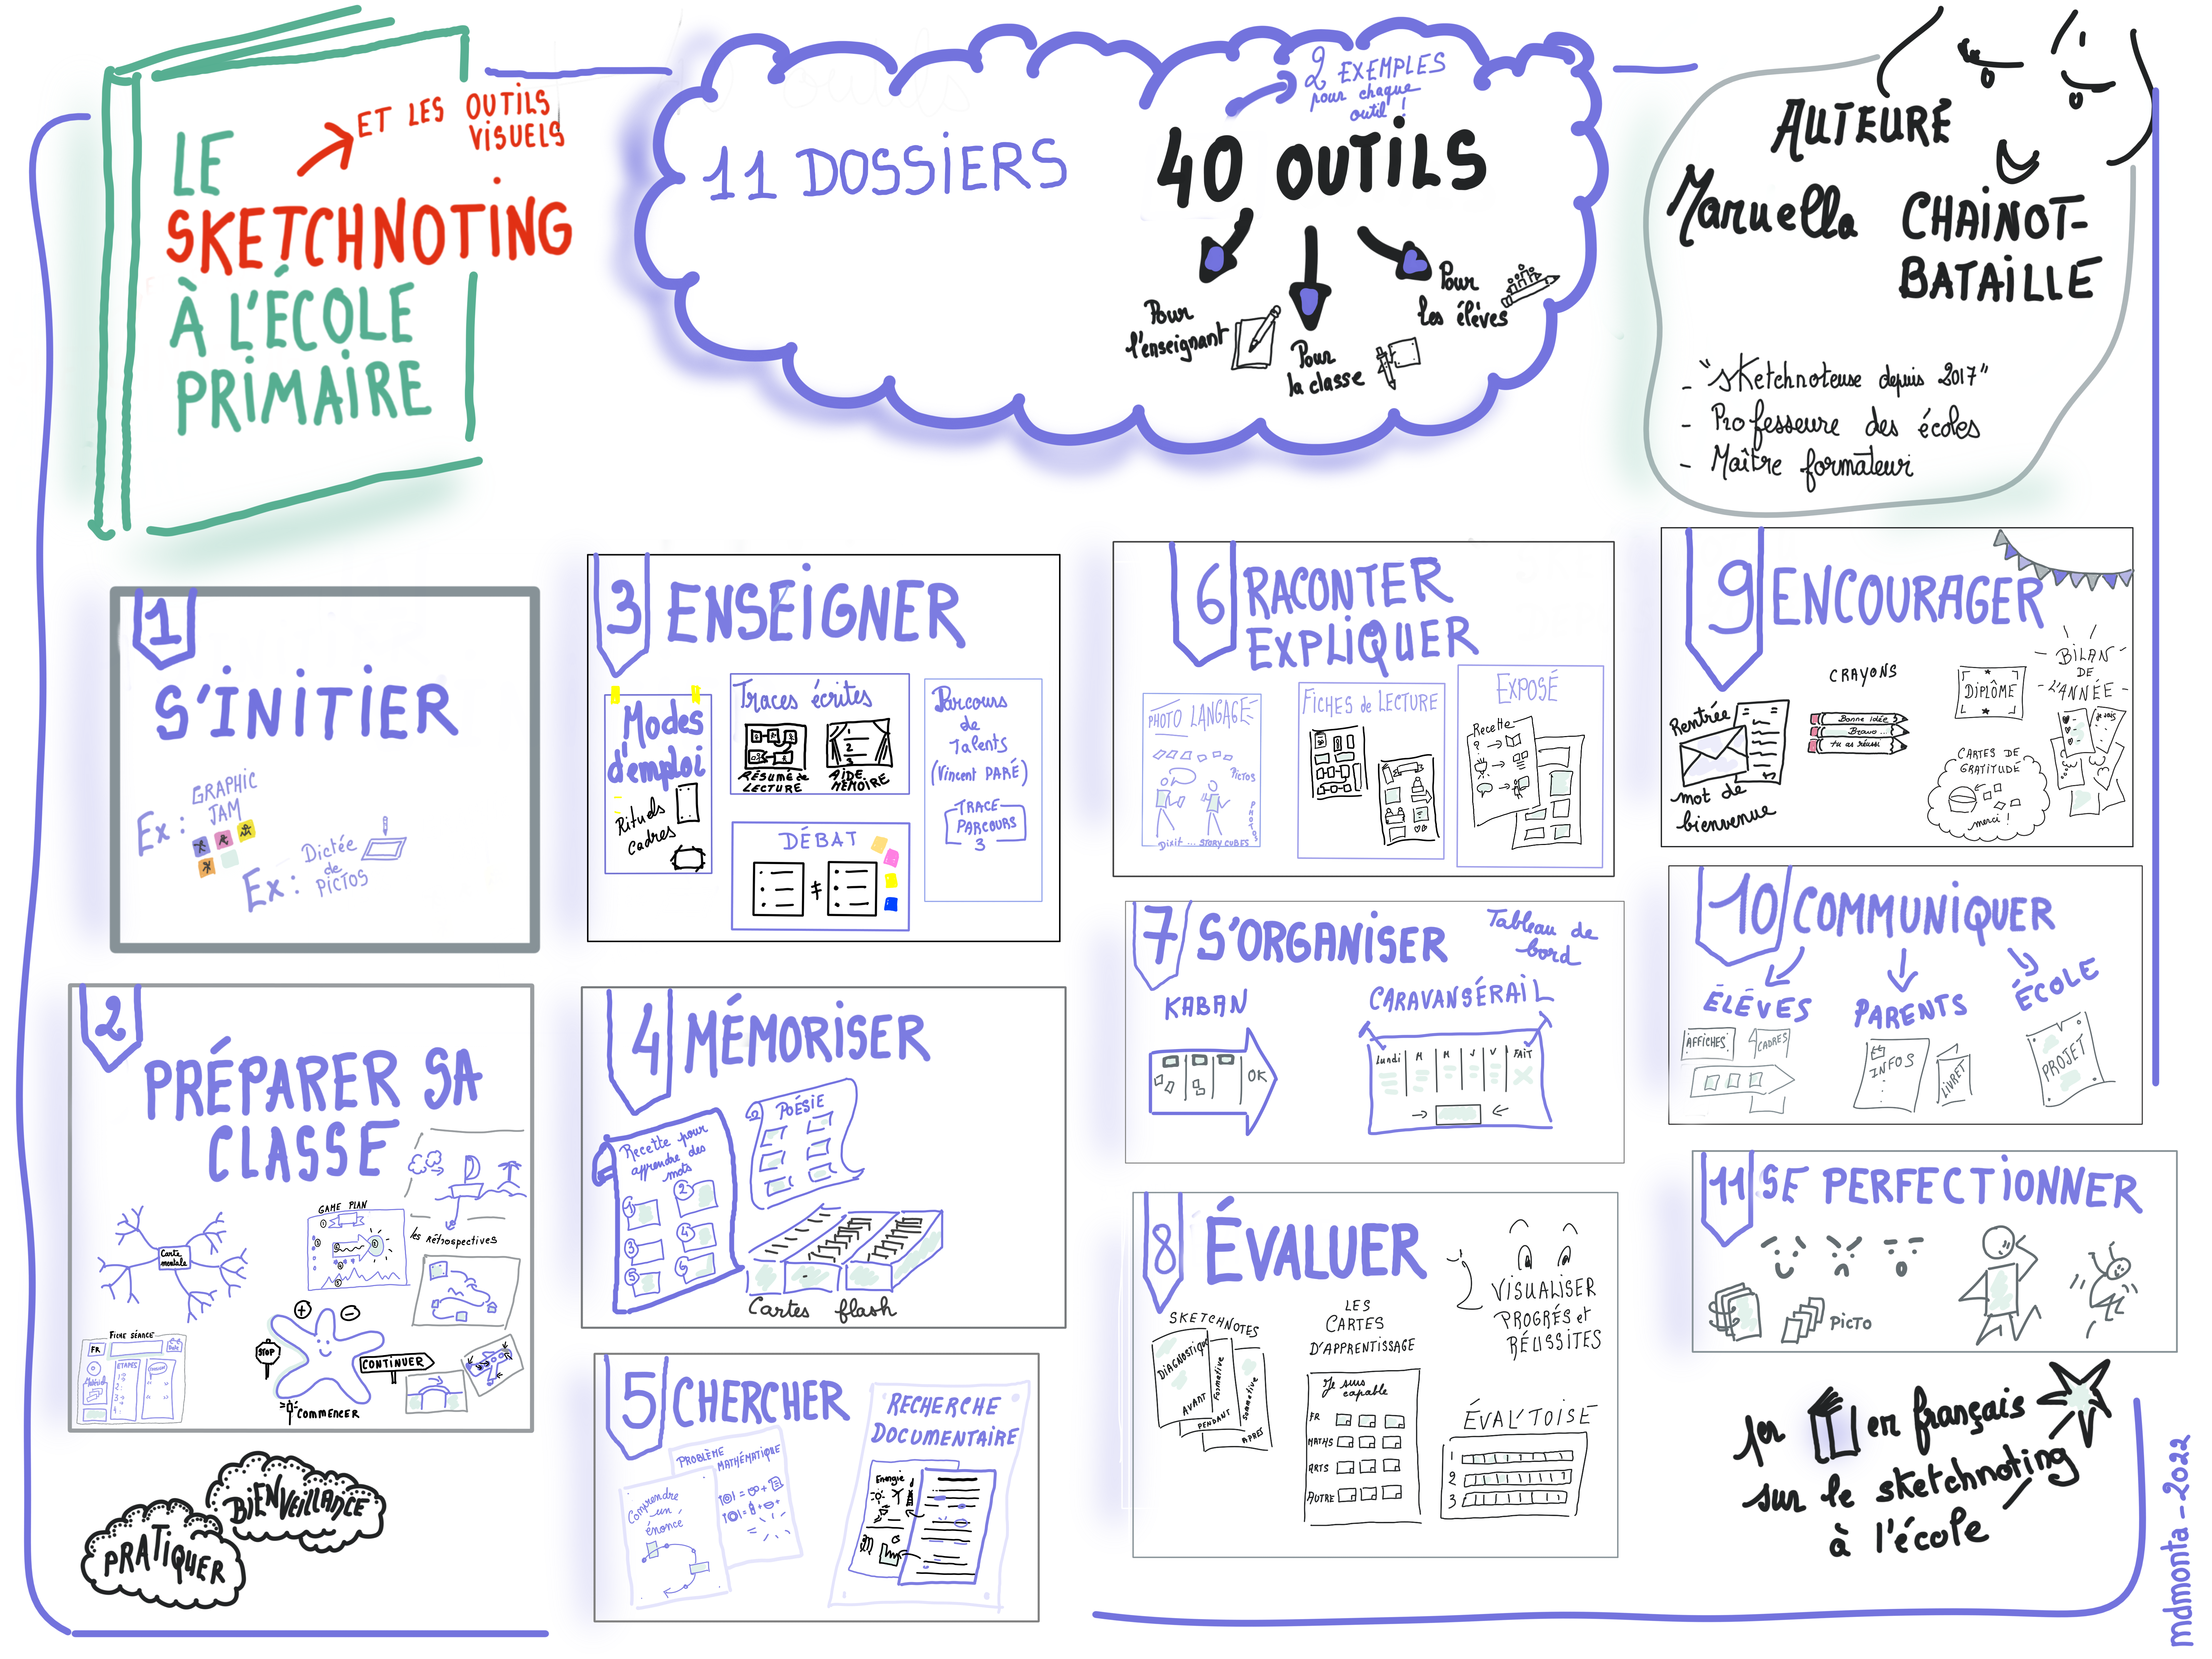 LE
SKETCHNOTING
À L'ÉCOLE
PRIMAIRE
ET LES OUTILS
VISUELS
11 DOSSIERS
40 OUTILS
2 EXEMPLES
pour chaque
outil !
Pour
l'enseignant
Pour
la classe
Pour
les élèves
AUTEURE
Manuella CHAINOT-
BATAILLE
- "sketchnoteuse depuis 2017"
- Professeure des écoles
- Maître formateur
1
S'INITIER
Ex : GRAPHIC
JAM
Ex : Dictée
de
PICTOS
2
PRÉPARER SA
CLASSE
Carte
mentale
GAME PLAN
les Rétrospectives
FICHE SÉANCE
FR
Date
ETAPES
Matériel
+
-
STOP
CONTINUER
COMMENCER
PRATIQUER
BIENVEILLANCE
3 ENSEIGNER
Modes
d'emploi
Rituels
Cadres
Traces écrites
RÉSUMÉ de
LECTURE
AIDE
MÉMOIRE
DÉBAT
≠
Parcours
de
Talents
(Vincent PARÉ)
TRACE
PARCOURS
3
4 MÉMORISER
Recette pour
apprendre des
mots
1
2
3
4
5
6
POÉSIE
Cartes flash
5 CHERCHER
PROBLÈME
MATHÉMATIQUE
Comprendre
un
énoncé
RECHERCHE
DOCUMENTAIRE
Energie
6 RACONTER
EXPLIQUER
PHOTO LANGAGE
PICTOS
PHOTOS
Dixit ... STORY CUBES
FICHES de LECTURE
EXPOSÉ
Recette
7 S'ORGANISER
Tableau de
bord
KABAN
OK
CARAVANSÉRAIL
Lundi M M J V FAIT
8 ÉVALUER
SKETCHNOTES
DIAGNOSTIQUE
AVANT
Formative
PENDANT
Sommative
APRÈS
LES
CARTES
D'APPRENTISSAGE
Je suis
capable
FR
MATHS
ARTS
AUTRE
VISUALISER
PROGRÉS et
RÉUSSITES
ÉVAL'TOISE
1
2
3
9 ENCOURAGER
Rentrée
mot de
bienvenue
CRAYONS
Bonne idée
Bravo...
tu as réussi
DIPLÔME
BILAN
DE
L'ANNÉE
je sais
CARTES DE
GRATITUDE
merci !
10 COMMUNIQUER
ÉLÉVES
AFFICHES
CADRES
PARENTS
INFOS
LIVRET
ÉCOLE
PROJET
11 SE PERFECTIONNER
PICTO
1er en français
sur le sketchnoting
à l'école
mdmonta - 2022